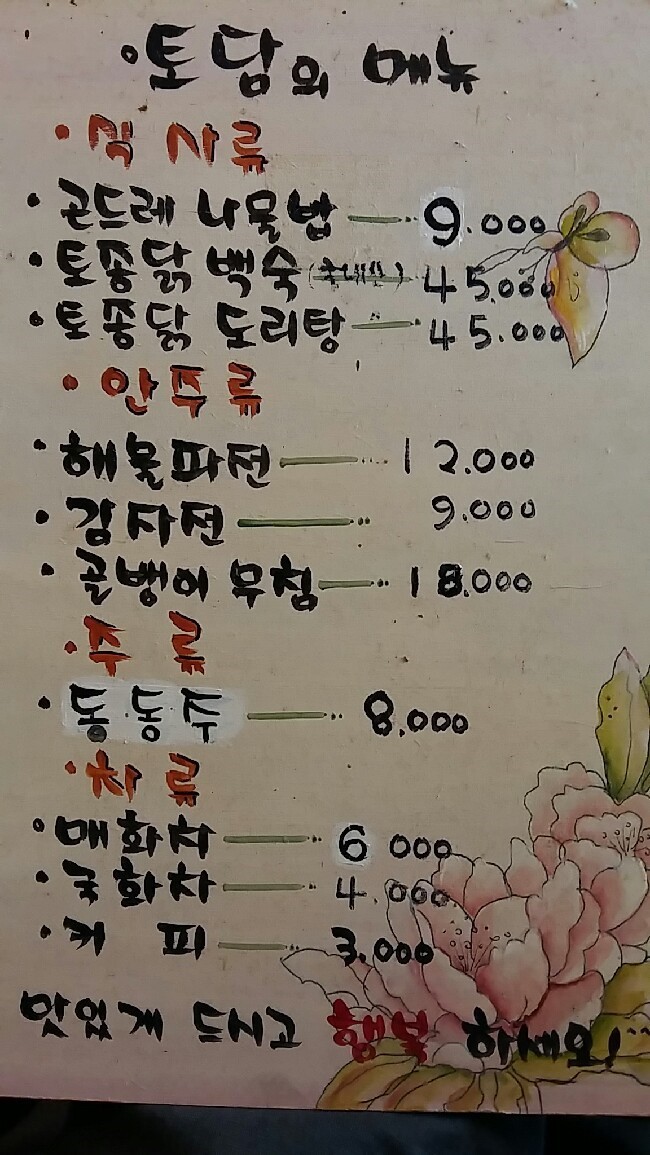 토담의 메뉴
· 식사류
· 곤드레 나물밥 9.000
· 토종닭 백숙 (국내산) 45.000
· 토종닭 도리탕 45.000
· 안주류
· 해물파전 12.000
· 감자전 9.000
· 골뱅이 무침 18.000
· 주류
· 동동주 8.000
· 차류
· 매화차 6 000
· 국화차 4.000
· 커피 3.000
맛있게 드시고 행복 하세요!